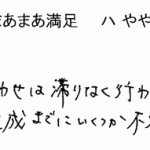 まあまあ満足 ハ やや
わせは滞りなく行わ
成までにいくつか不